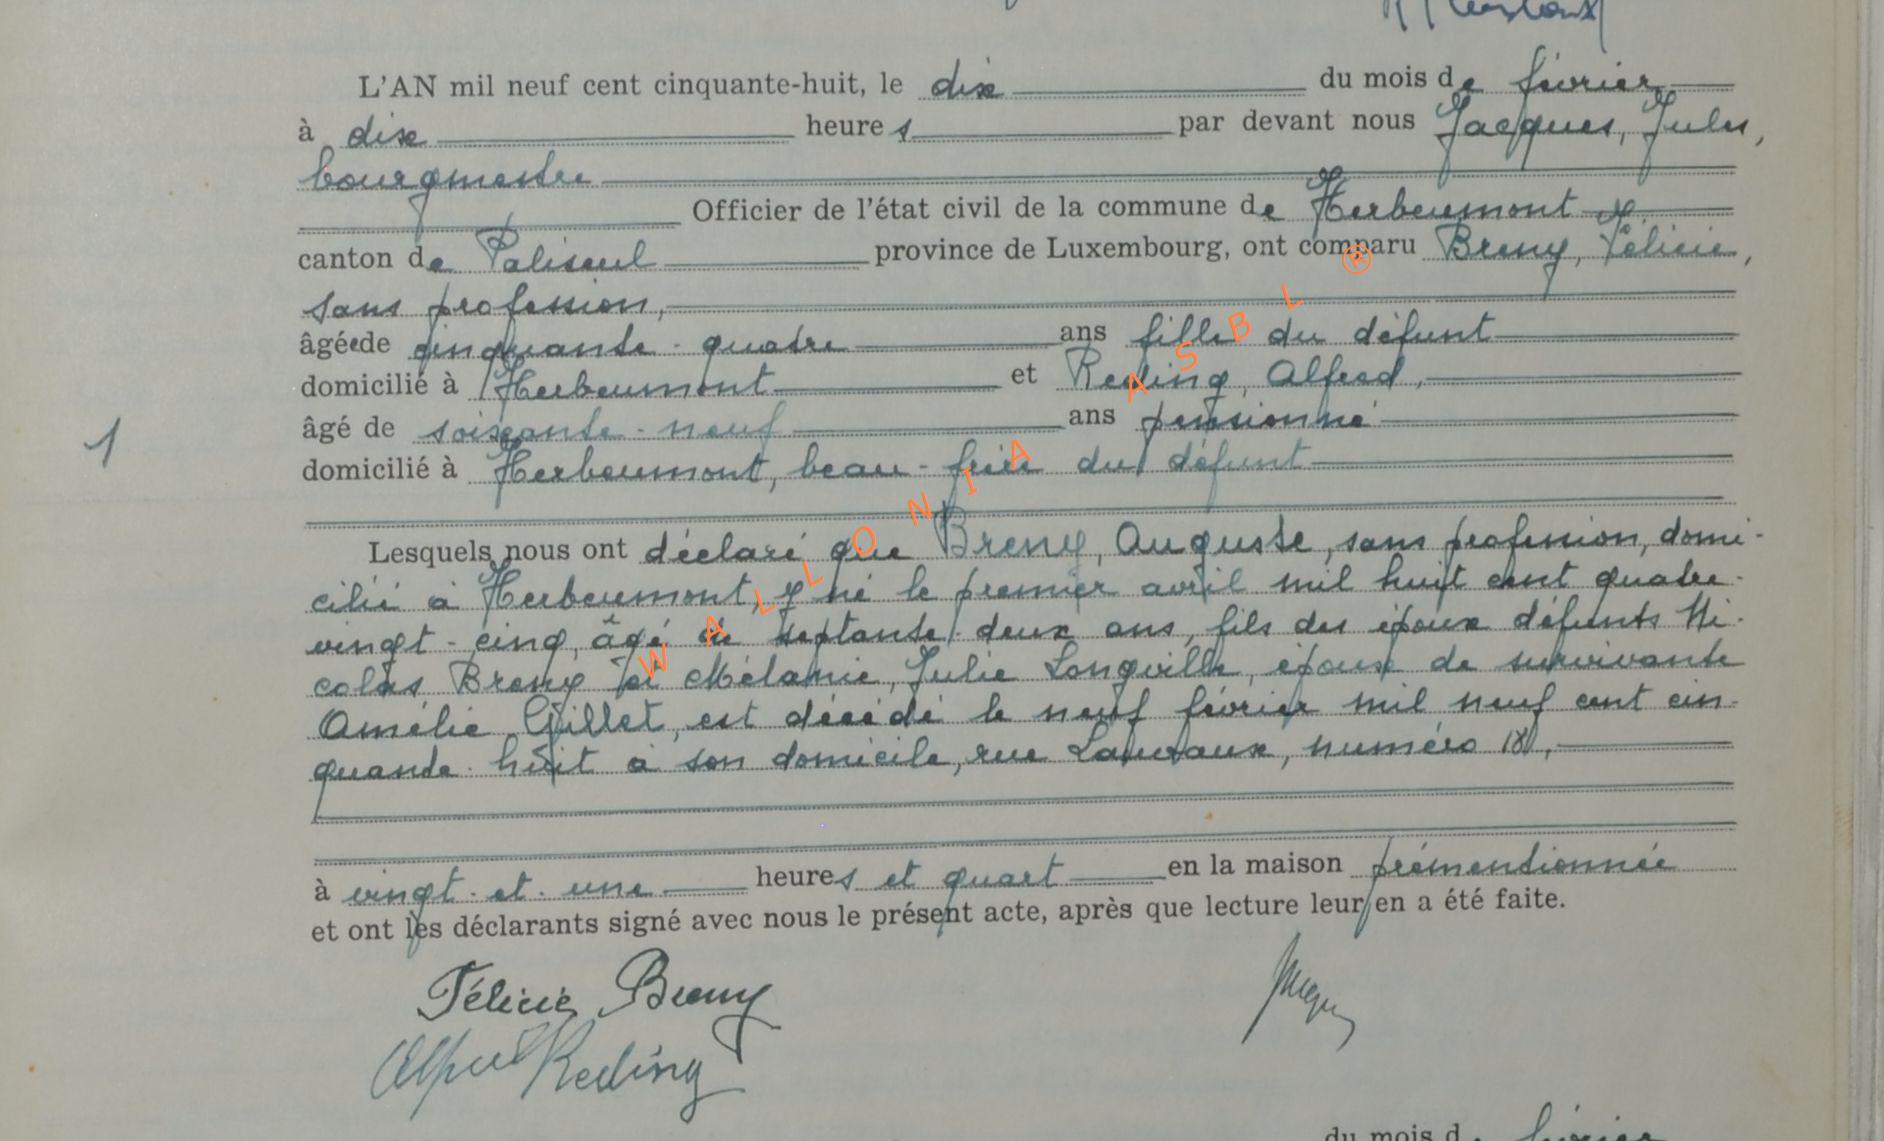 L'AN mil neuf cent cinquante-huit, le dix du mois de février
à dix heures par devant nous Jacques, Jules,
bourgmestre
Officier de l'état civil de la commune de Herbeumont
canton de Paliseul province de Luxembourg, ont comparu Breny, Félicie,
sans profession,
âgée de cinquante-quatre ans fille du défunt
domicilié à Herbeumont et Reding, Alfred,
âgé de soixante-neuf ans pensionné
domicilié à Herbeumont, beau-frère du défunt
Lesquels nous ont déclaré que Breny, Auguste, sans profession, domi-
cilié à Herbeumont, y né le premier avril mil huit cent quatre-
vingt-cinq, âgé de septante-deux ans, fils des époux défunts Ni-
colas Breny et Mélanie, Julie Longville, époux de survivante
Amélie Gillet, est décédé le neuf février mil neuf cent cin-
quante-huit à son domicile, rue Lauvaux, numéro
à vingt-et-une heures et quart en la maison prémentionnée
et ont les déclarants signé avec nous le présent acte, après que lecture leur en a été faite.
Félicie Breny
Jacques
Alfred Reding
du mois de février
1
WALLONIA ASBL ®